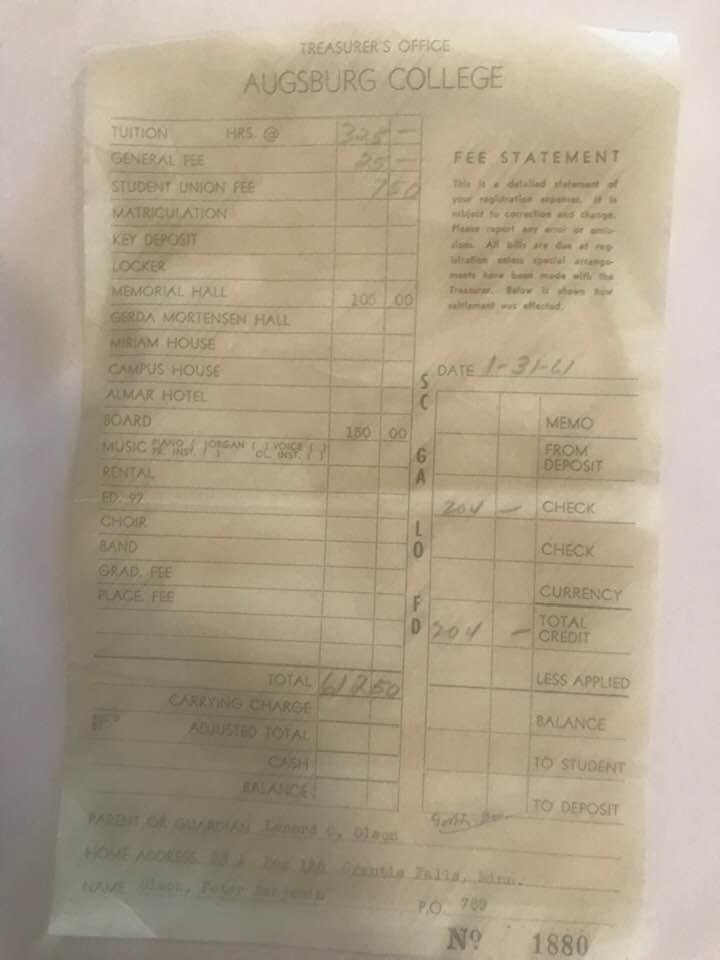 TREASURER'S OFFICE
AUGSBURG COLLEGE
TUITION HRS. @ 325 —
GENERAL FEE 25 —
STUDENT UNION FEE 7 50
MATRICULATION
KEY DEPOSIT
LOCKER
MEMORIAL HALL 105 00
GERDA MORTENSEN HALL
MIRIAM HOUSE
CAMPUS HOUSE
ALMAR HOTEL
BOARD 150 00
MUSIC PIANO ( ) ORGAN ( ) VOICE ( )
PR. INST. ( ) OL. INST. ( )
RENTAL
ED. 97
CHOIR
BAND
GRAD. FEE
PLACE. FEE
TOTAL 612 50
CARRYING CHARGE
ADJUSTED TOTAL
CASH
BALANCE
FEE STATEMENT
This is a detailed statement of
your registration expenses. It is
subject to correction and change.
Please report any error or omis-
sions. All bills are due at reg-
istration unless special arrange-
ments have been made with the
Treasurer. Below is shown how
settlement was effected.
DATE 1-31-61
SC
GA
LO
FD
MEMO
FROM DEPOSIT
204 — CHECK
CHECK
CURRENCY
204 — TOTAL CREDIT
LESS APPLIED
BALANCE
TO STUDENT
TO DEPOSIT
PARENT OR GUARDIAN Lenord C. Olson
HOME ADDRESS Box Granite Falls, Minn.
NAME Olson, Peter Benjamin
P.O. 789
Nº 1880